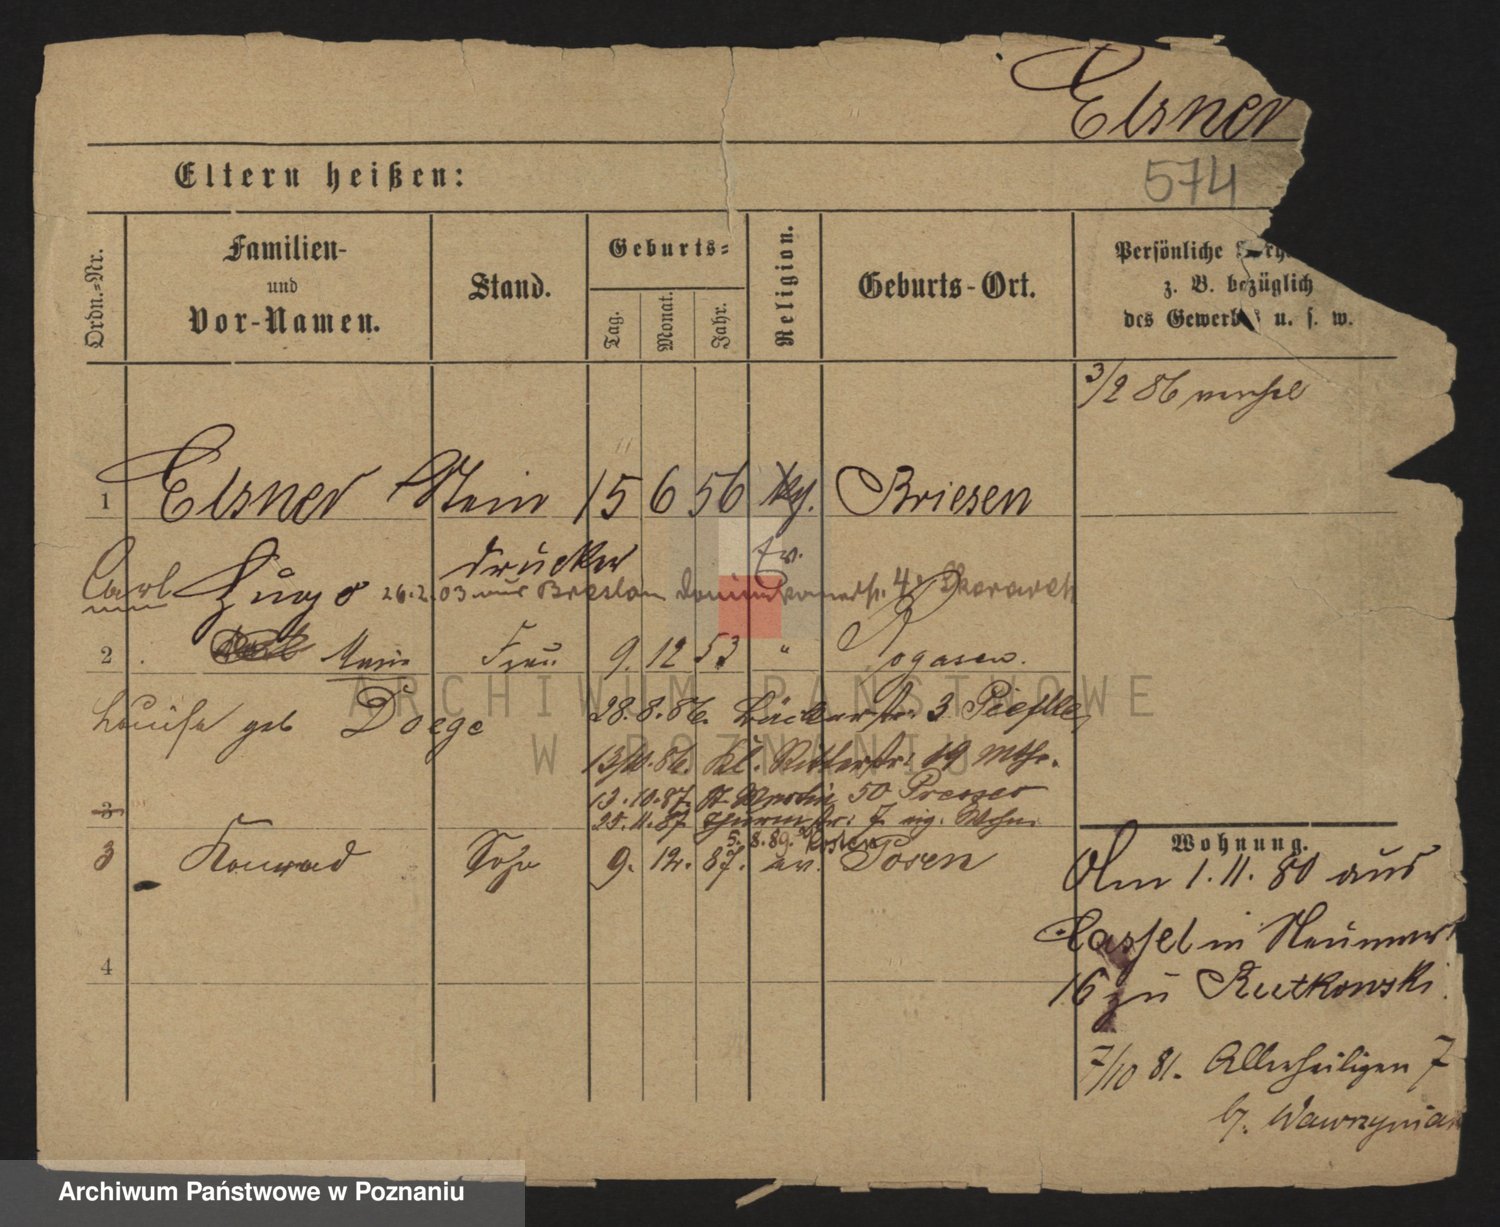 Elsner
574
Eltern heißen:
Ordn.-Nr.
Familien-
und
Vor-Namen.
Stand.
Geburts-
Tag.
Monat.
Jahr.
Religion.
Geburts-Ort.
Persönliche
z. B. bezüglich
des Gewerb u. s. w.
3/2 86
1 Elsner Stein 15 6 56 Briesen
drucker
ev.
Carl Hugo 26.2.03 aus Breslau 4
2 Marie Frau 9. 12 53 " Rogasen.
Louise geb Doege
28.8.86. Bäckerstr. 3
13/10.86. Kl. Ritterstr. 19
13.10.87. St. Martin 50 Presser
25.11.87 Thurmstr. 7 eig. Wohn.
5.8.89.
3
3 Konrad Sohn 9. 12. 87. ev. Posen
4
Wohnung.
Am 1.11.80 aus
Cassel in Neumark
16 zu Rutkowski.
7/10 81. Allerheiligen 7
b/. Wawrzyniak
ARCHIWUM PAŃSTWOWE
W POZNANIU
Archiwum Państwowe w Poznaniu